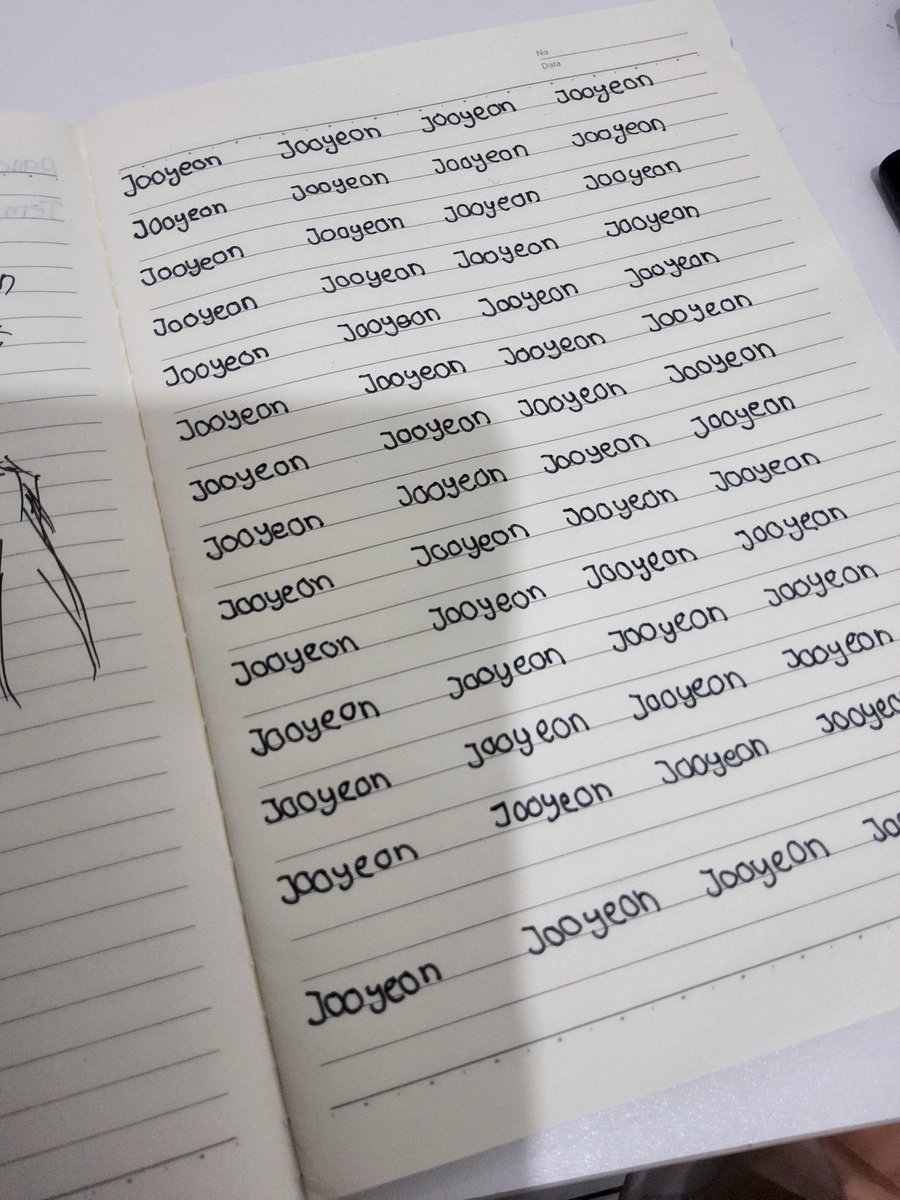 No
Date
Jooyeon Jooyeon Jooyeon Jooyeon
Jooyeon Jooyeon Jooyeon Jooyeon
Jooyeon Jooyeon Jooyeon Jooyeon
Jooyeon Jooyeon Jooyeon Jooyeon
Jooyeon Jooyeon Jooyeon Jooyeon
Jooyeon Jooyeon Jooyeon Jooyeon
Jooyeon Jooyeon Jooyeon Jooyeon
Jooyeon Jooyeon Jooyeon Jooyeon
Jooyeon Jooyeon Jooyeon Jooyeon
Jooyeon Jooyeon Jooyeon Jooyeon
Jooyeon Jooyeon Jooyeon Jooyeon
Jooyeon Jooyeon Jooyeon Jooyeon
Jooyeon Jooyeon Jooyeon Jooyeo
Jooyeon Jooyeon Jooyeon Joo